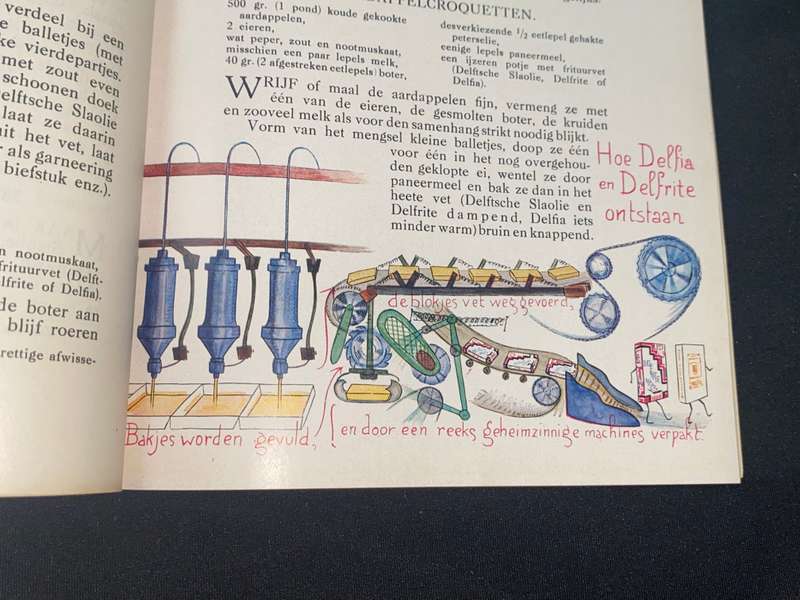 verdeel bij een
balletjes (met
ke vierdepartjes.
met zout even
schoonen doek
Delftsche Slaolie
laat ze daarin
uit het vet, laat
als garneering
biefstuk enz.).
en nootmuskaat,
frituurvet (Delft-
elfrite of Delfia).
de boter aan
blijf roeren
rettige afwisse-
PELCROQUETTEN.
500 gr. (1 pond) koude gekookte
aardappelen,
2 eieren,
wat peper, zout en nootmuskaat,
misschien een paar lepels melk,
40 gr. (2 afgestreken eetlepels) boter,
desverkiezende 1/2 eetlepel gehakte
peterselie,
eenige lepels paneermeel,
een ijzeren potje met frituurvet
(Delftsche Slaolie, Delfrite of
Delfia).
WRIJF of maal de aardappelen fijn, vermeng ze met
één van de eieren, de gesmolten boter, de kruiden
en zooveel melk als voor den samenhang strikt noodig blijkt.
Vorm van het mengsel kleine balletjes, doop ze één
voor één in het nog overgehou-
den geklopte ei, wentel ze door
paneermeel en bak ze dan in het
heete vet (Delftsche Slaolie en
Delfrite dampend, Delfia iets
minder warm) bruin en knappend.
Hoe Delfia
en Delfrite
ontstaan
de blokjes vet weggevoerd,
Bakjes worden gevuld,
en door een reeks geheimzinnige machines verpakt.